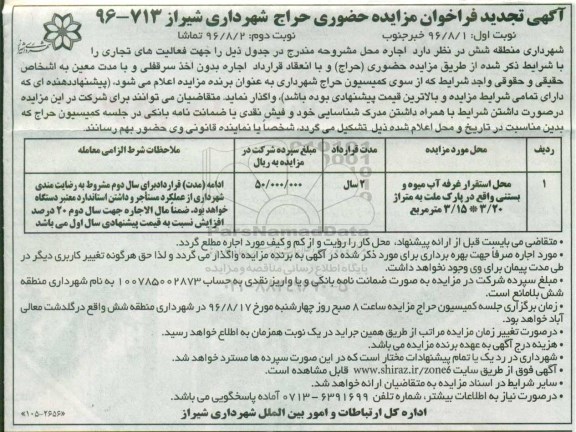 آگهی تجدید فراخوان مزایده حضوری حراج شهرداری شیراز ۷۱۳-۹۶
نوبت اول: ۹۶/۸/۱ خبرجنوب
نوبت دوم: ۹۶/۸/۲ تماشا
شهرداری منطقه شش در نظر دارد اجاره محل مشروحه مندرج در جدول ذیل را جهت فعالیت های تجاری را
با شرایط ذکر شده از طریق مزایده حضوری (حراج) و با انعقاد قرارداد اجاره بدون اخذ سرقفلی و با مدت معین به اشخاص
حقیقی و حقوقی واجد شرایط که از سوی کمیسیون حراج شهرداری به عنوان برنده مزایده اعلام می شود. (پیشنهاددهنده ای که
دارای تمامی شرایط مزایده و بالاترین قیمت پیشنهادی بوده باشد)، واگذار نماید. متقاضیان می توانند برای شرکت در این مزایده
درصورت داشتن شرایط با همراه داشتن مدرک شناسایی خود و فیش نقدی یا ضمانت نامه بانکی در جلسه کمیسیون حراج که
بدین مناسبت در تاریخ و محل اعلام شده ذیل تشکیل می گردد، شخصاً یا نماینده قانونی وی حضور بهم رسانند.
ردیف
محل مورد مزایده
مدت قرارداد
مبلغ سپرده شرکت در مزایده به ریال
ملاحظات شرط الزامی معامله
۱
محل استقرار غرفه آب میوه و
بستنی واقع در پارک ملت به متراژ
۳/۲۰ * ۳/۱۵ مترمربع
۲ سال
۵۰/۰۰۰/۰۰۰
ادامه (مدت) قراردادبرای سال دوم مشروط به رضایت مندی
شهرداری از عملکرد مستأجر و داشتن استاندارد معتبر دستگاه
خواهد بود. ضمنا مال الاجاره جهت سال دوم ۲۰ درصد
افزایش نسبت به قیمت پیشنهادی سال اول می باشد
• متقاضی می بایست قبل از ارائه پیشنهاد، محل کار را رؤیت و از کم و کیف مورد اجاره مطلع گردد.
• مورد اجاره صرفاً جهت بهره برداری برای مورد ذکر شده در آگهی به برنده مزایده واگذار می گردد و لذا حق هرگونه تغییر کاربری دیگر در
طی مدت پیمان برای وی وجود نخواهد داشت.
• مبلغ سپرده شرکت در مزایده به صورت ضمانت نامه بانکی و یا واریز نقدی به حساب ۱۰۰۷۸۵۰۰۲۸۷۲ به نام شهرداری منطقه
شش بلامانع است.
• زمان برگزاری جلسه کمیسیون حراج مزایده ساعت ۸ صبح روز چهارشنبه مورخ ۹۶/۸/۱۷ در شهرداری منطقه شش واقع در گلدشت معالی
آباد خواهد بود.
• درصورت تغییر زمان مزایده مراتب از طریق همین جراید در یک نوبت همزمان به اطلاع خواهد رسید.
• هزینه درج آگهی به عهده برنده مزایده می باشد.
• شهرداری در رد یک یا تمام پیشنهادات مختار است که در این صورت سپرده ها مسترد خواهد شد.
• آگهی فوق از طریق سایت www.shiraz.ir/zone6 قابل مشاهده است.
• سایر شرایط در اسناد مزایده به متقاضیان ارائه خواهد شد.
• درصورت نیاز به اطلاعات بیشتر، شماره تلفن ۶۳۹۱۶۹۹-۰۷۱۳ آماده پاسخگویی می باشد.
اداره کل ارتباطات و امور بین الملل شهرداری شیراز
«۱۰۵-۲۶۵۶»
ParsNamadData
پایگاه اطلاع رسانی مناقصه و مزایده